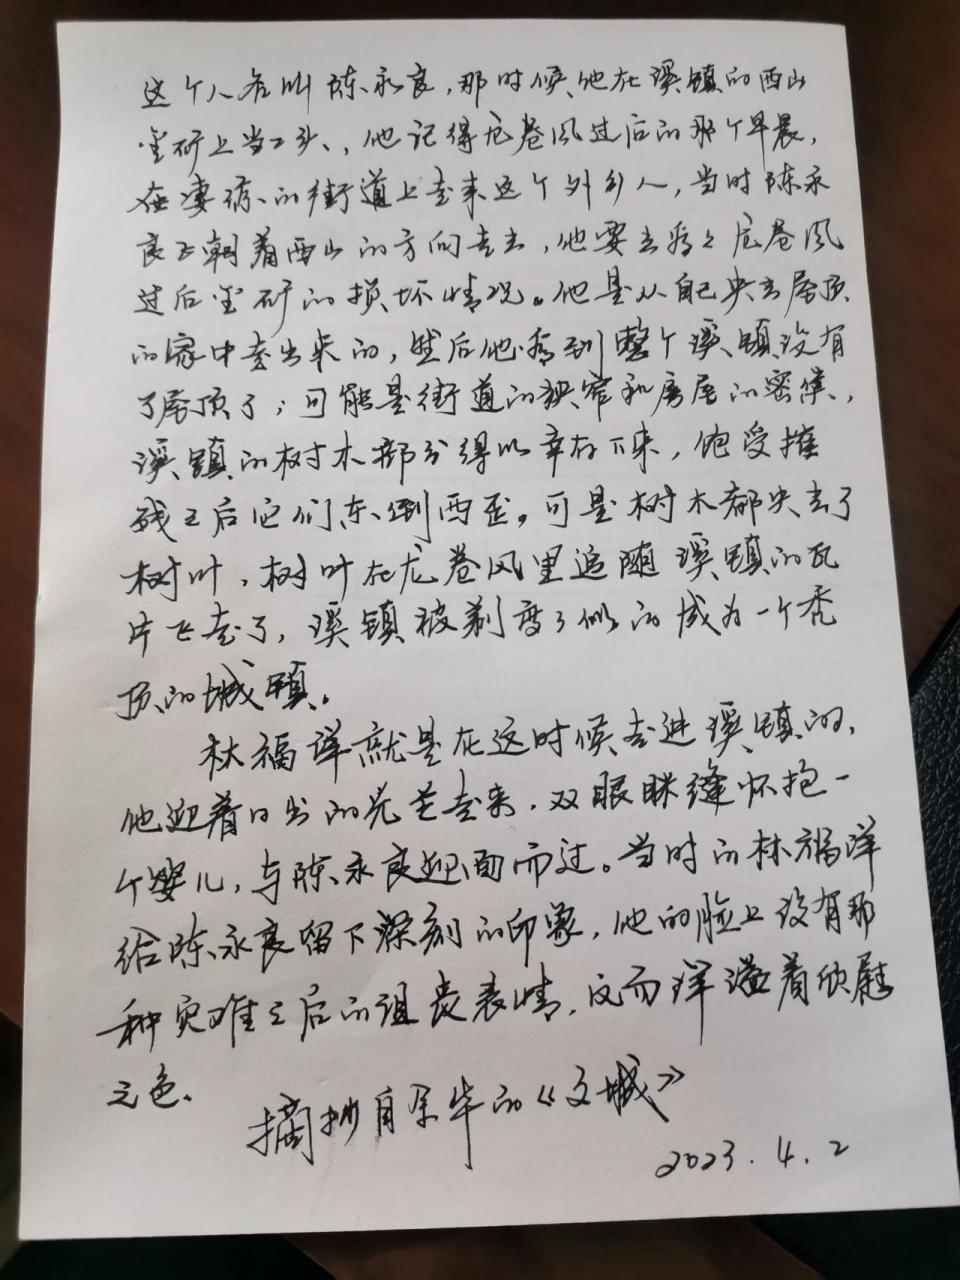 这个人名叫陈永良，那时候他在溪镇的西山
金矿上当工头，他记得龙卷风过后的那个早晨，
在凄凉的街道上走来这个外乡人，当时陈永
良正朝着西山的方向走去，他要去看看龙卷风
过后金矿的损坏情况。他是从自己失去屋顶
的家中走出来的，然后他看到整个溪镇没有
了屋顶了；可能是街道的狭窄和房屋的密集，
溪镇的树木部分得以幸存下来，饱受摧
残之后它们东倒西歪，可是树木都失去了
树叶，树叶在龙卷风里追随溪镇的瓦
片飞走了，溪镇被剃度了似的成为一个秃
顶的城镇。
林福祥就是在这时候走进溪镇的，
他迎着日出的光芒走来，双眼眯缝怀抱一
个婴儿，与陈永良迎面而过。当时的林福祥
给陈永良留下深刻的印象，他的脸上没有那
种灾难之后的沮丧表情，反而洋溢着欣慰
之色。
摘抄自余华的《文城》
2023.4.2